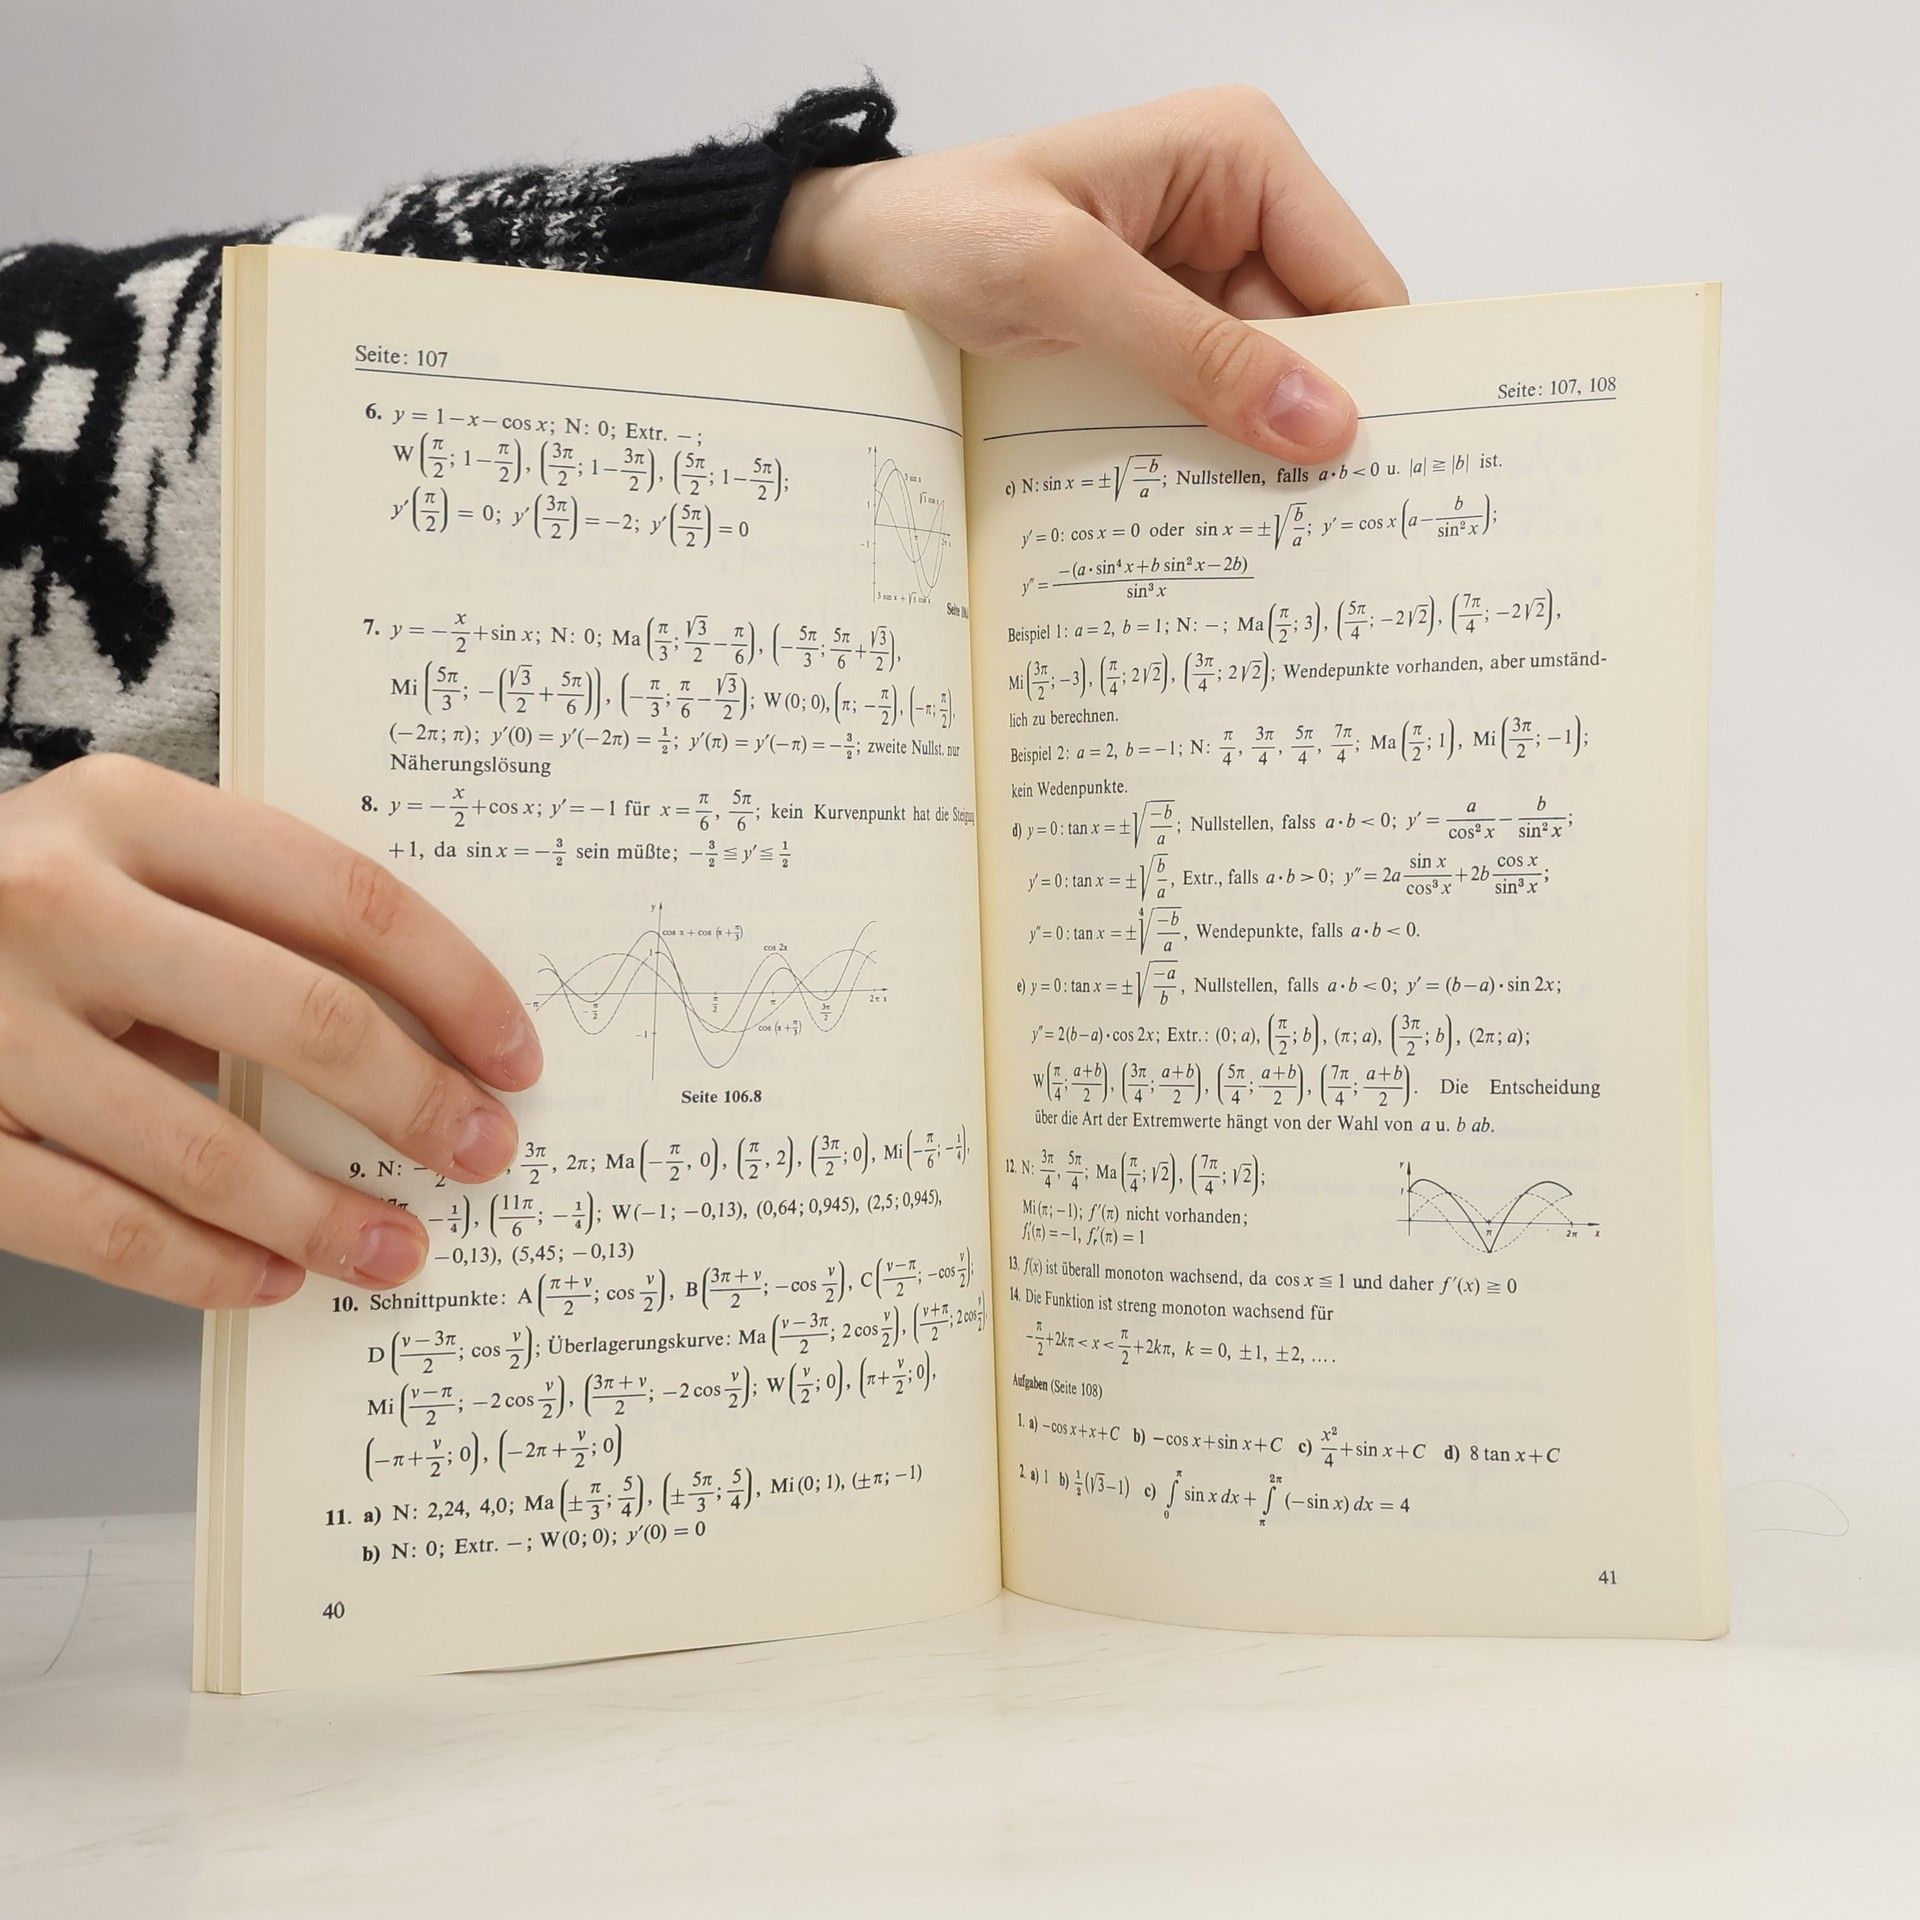 Seite: 107
6. y = 1−x−cos x; N: 0; Extr. −;
W(π/2; 1−π/2), (3π/2; 1−3π/2), (5π/2; 1−5π/2);
y′(π/2) = 0; y′(3π/2) = −2; y′(5π/2) = 0
y
3 sin x
√3 cos x
1
−1
π
2π x
3 sin x + √3 cos x
7. y = −x/2+sin x; N: 0; Ma(π/3; √3/2−π/6), (−5π/3; 5π/6+√3/2),
Mi(5π/3; −(√3/2+5π/6)), (−π/3; π/6−√3/2); W(0; 0), (π; −π/2), (−π; π/2),
(−2π; π); y′(0) = y′(−2π) = 1/2; y′(π) = y′(−π) = −3/2; zweite Nullst. nur
Näherungslösung
8. y = −x/2+cos x; y′ = −1 für x = π/6, 5π/6; kein Kurvenpunkt hat die Steigung
+1, da sin x = −3/2 sein müßte; −3/2 ≦ y′ ≦ 1/2
y
cos x + cos (x + π/3)
cos 2x
1
−π
−π/2
π/2
π
3π/2
2π x
cos (x + π/3)
−1
Seite 106.8
9. N: 3π/2, 2π; Ma(−π/2, 0), (π/2, 2), (3π/2; 0), Mi(−π/6; −1/4),
−1/4), (11π/6; −1/4); W(−1; −0,13), (0,64; 0,945), (2,5; 0,945),
−0,13), (5,45; −0,13)
10. Schnittpunkte: A((π+v)/2; cos v/2), B((3π+v)/2; −cos v/2), C((v−π)/2; −cos v/2);
D((v−3π)/2; cos v/2); Überlagerungskurve: Ma((v−3π)/2; 2 cos v/2), ((v+π)/2; 2 cos v/2),
Mi((v−π)/2; −2 cos v/2), ((3π+v)/2; −2 cos v/2); W(v/2; 0), (π+v/2; 0),
(−π+v/2; 0), (−2π+v/2; 0)
11. a) N: 2,24, 4,0; Ma(±π/3; 5/4), (±5π/3; 5/4), Mi(0; 1), (±π; −1)
b) N: 0; Extr. −; W(0; 0); y′(0) = 0
40
Seite: 107, 108
c) N: sin x = ±√(−b/a); Nullstellen, falls a·b < 0 u. |a| ≧ |b| ist.
y′ = 0: cos x = 0 oder sin x = ±√(b/a); y′ = cos x(a − b/sin² x);
y″ = −(a·sin⁴ x+b sin² x−2b)/sin³ x
Beispiel 1: a = 2, b = 1; N: −; Ma(π/2; 3), (5π/4; −2√2), (7π/4; −2√2),
Mi(3π/2; −3), (π/4; 2√2), (3π/4; 2√2); Wendepunkte vorhanden, aber umständ-
lich zu berechnen.
Beispiel 2: a = 2, b = −1; N: π/4, 3π/4, 5π/4, 7π/4; Ma(π/2; 1), Mi(3π/2; −1);
kein Wedenpunkte.
d) y = 0: tan x = ±√(−b/a); Nullstellen, falss a·b < 0; y′ = a/cos² x − b/sin² x;
y′ = 0: tan x = ±√(b/a), Extr., falls a·b > 0; y″ = 2a sin x/cos³ x + 2b cos x/sin³ x;
y″ = 0: tan x = ±⁴√(−b/a), Wendepunkte, falls a·b < 0.
e) y = 0: tan x = ±√(−a/b), Nullstellen, falls a·b < 0; y′ = (b−a)·sin 2x;
y″ = 2(b−a)·cos 2x; Extr.: (0; a), (π/2; b), (π; a), (3π/2; b), (2π; a);
W(π/4; (a+b)/2), (3π/4; (a+b)/2), (5π/4; (a+b)/2), (7π/4; (a+b)/2). Die Entscheidung
über die Art der Extremwerte hängt von der Wahl von a u. b ab.
12. N: 3π/4, 5π/4; Ma(π/4; √2), (7π/4; √2);
Mi(π; −1); f′(π) nicht vorhanden;
f′ₗ(π) = −1, f′ᵣ(π) = 1
y
1
π
2π x
13. f(x) ist überall monoton wachsend, da cos x ≦ 1 und daher f′(x) ≧ 0
14. Die Funktion ist streng monoton wachsend für
−π/2+2kπ < x < π/2+2kπ, k = 0, ±1, ±2, ....
Aufgaben (Seite 108)
1. a) −cos x+x+C b) −cos x+sin x+C c) x²/4+sin x+C d) 8 tan x+C
2. a) 1 b) 1/2(√3−1) c) ∫₀^π sin x dx + ∫_π^2π (−sin x) dx = 4
41